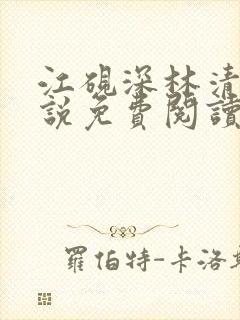 江硯深林清
說免費閱讀
羅伯特-卡洛斯